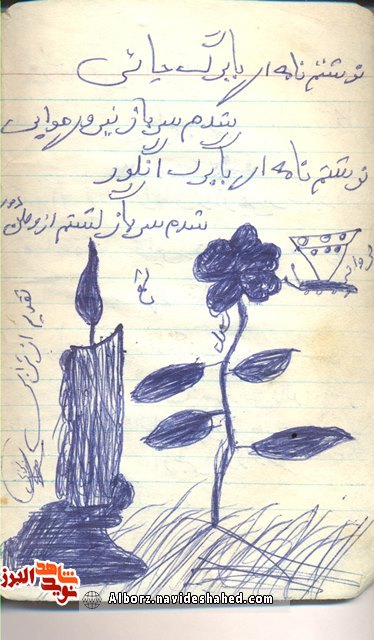 نوشتم نامه ای با برگ چائی
شدم سرباز نیروی هوایی
نوشتم نامه ای با برگ انگور
شدم سرباز گشتم از وطن دور
گل
تقدیم از
شاهد
نوید
البرز
Alborz.navideshahed.com